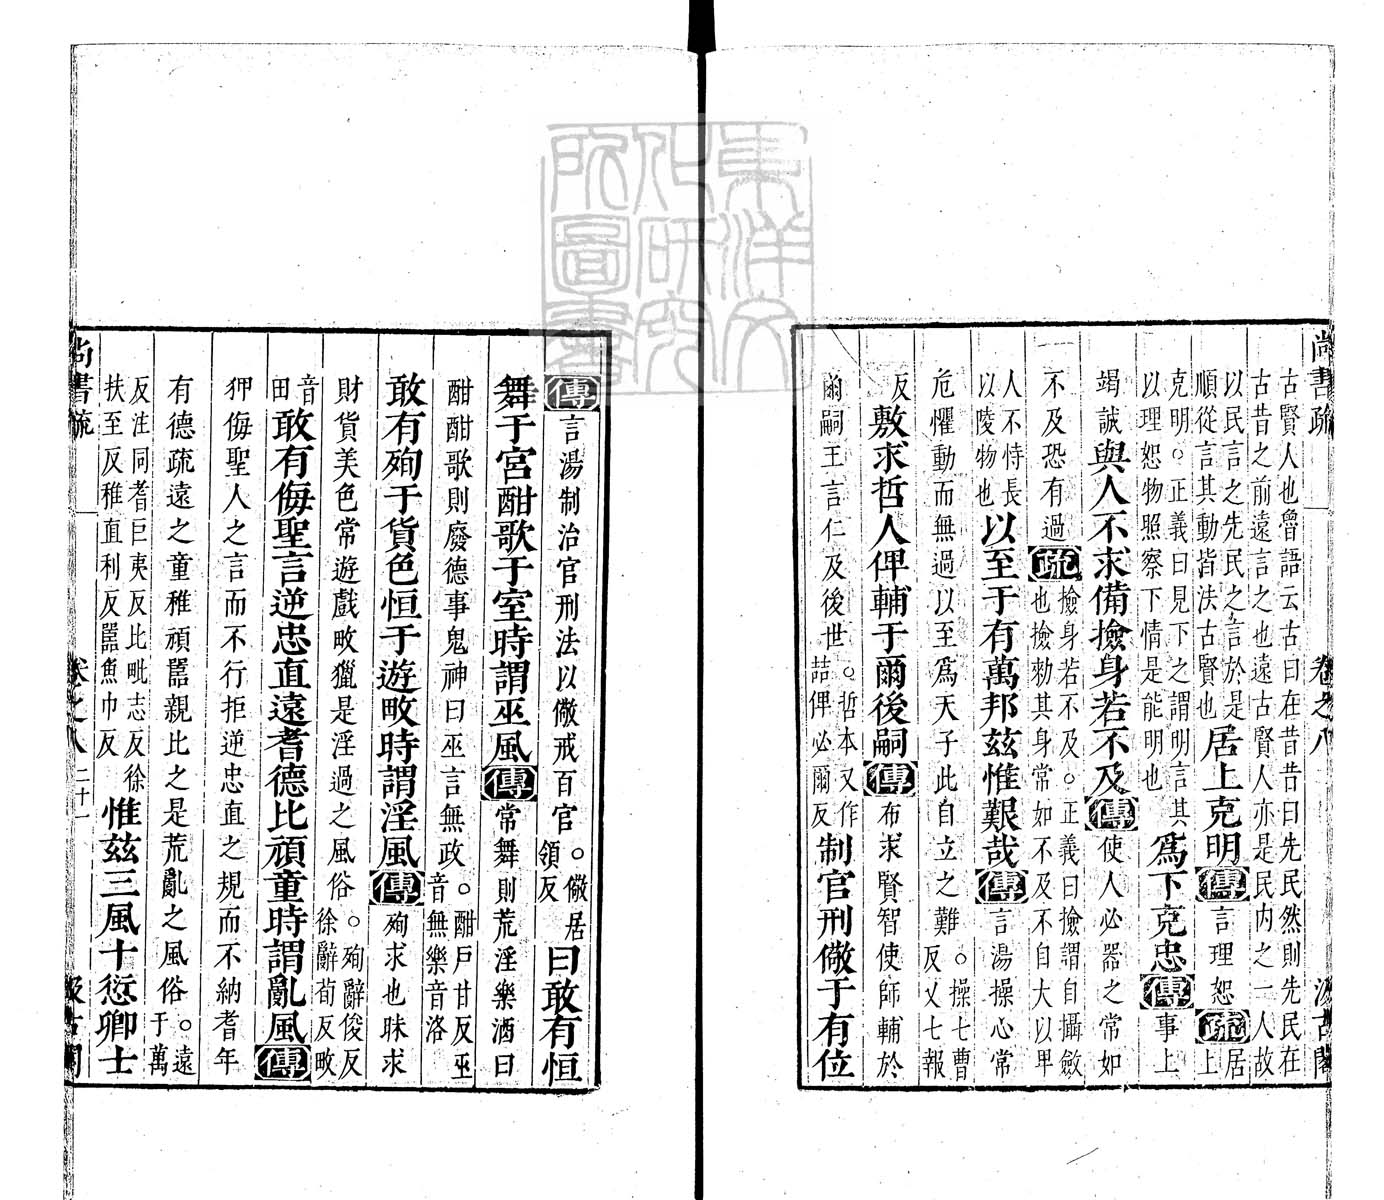 尚書疏 卷之八 汲古閣
古賢人也魯語云古曰在昔昔曰先民然則先民在
古昔之前遠言之也遠古賢人亦是民內之一人故
以民言之先民之言於是
順從言其動皆法古賢也
居上克明傳言理恕疏居上
克明○正義曰見下之謂明言其
以理恕物照察下情是能明也
爲下克忠傳事上
竭誠與人不求備撿身若不及傳使人必器之常如
不及恐有過疏撿身若不及○正義曰撿謂自攝斂
也撿勑其身常如不及不自大以卑
人不恃長
以陵物也
以至于有萬邦玆惟艱哉傳言湯操心常
危懼動而無過以至爲天子此自立之難○操七曹
反乂七報
反敷求哲人俾輔于爾後嗣傳布求賢智使師輔於
爾嗣王言仁及後世○哲本又作
喆俾必爾反
制官刑儆于有位
傳言湯制治官刑法以儆戒百官○儆居
領反
曰敢有恒
舞于宮酣歌于室時謂巫風傳常舞則荒淫樂酒曰
酣酣歌則廢德事鬼神曰巫言無政○酣戶甘反巫
音無樂音洛
敢有殉于貨色恒于遊畋時謂淫風傳殉求也昧求
財貨美色常遊戲畋獵是淫過之風俗○殉辭俊反
徐辭荀反畋
音
田
敢有侮聖言逆忠直遠耆德比頑童時謂亂風傳
狎侮聖人之言而不行拒逆忠直之規而不納耆年
有德疏遠之童稚頑嚚親比之是荒亂之風俗○遠
于萬
反注同耆巨夷反比毗志反徐
扶至反稚直利反嚚魚巾反
惟玆三風十愆卿士
尚書疏 卷之八 二十一 汲古閣
東洋文化研究所圖書